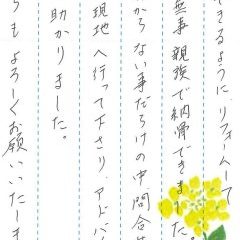 きるようにリフォームして
無事親族で納骨できました。
からない事だらけの中、問合せ
現地へ行って下さり、アドバ
助かりました。
らもよろしくお願いいたしま